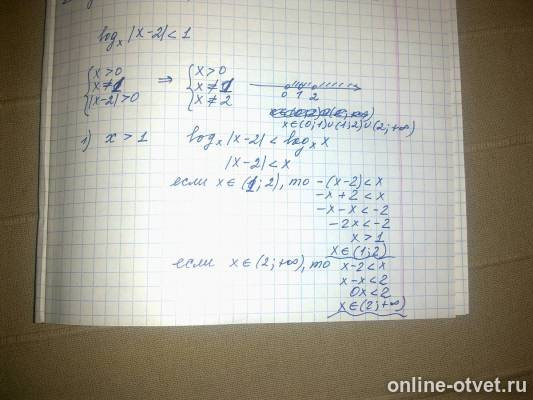 log_x |x-2| < 1
{ x > 0
x ≠ 1
|x-2| > 0
⇒ { x > 0
x ≠ 1
x ≠ 2
0 1 2
x∈(0;1)∪(1;2)∪(2;+∞)
1) x > 1 log_x |x-2| < log_x x
|x-2| < x
если x∈(1;2), то -(x-2) < x
-x+2 < x
-x-x < -2
-2x < -2
x > 1
x∈(1;2)
если x∈(2;+∞), то x-2 < x
x-x < 2
0x < 2
x∈(2;+∞)
online-otvet.ru